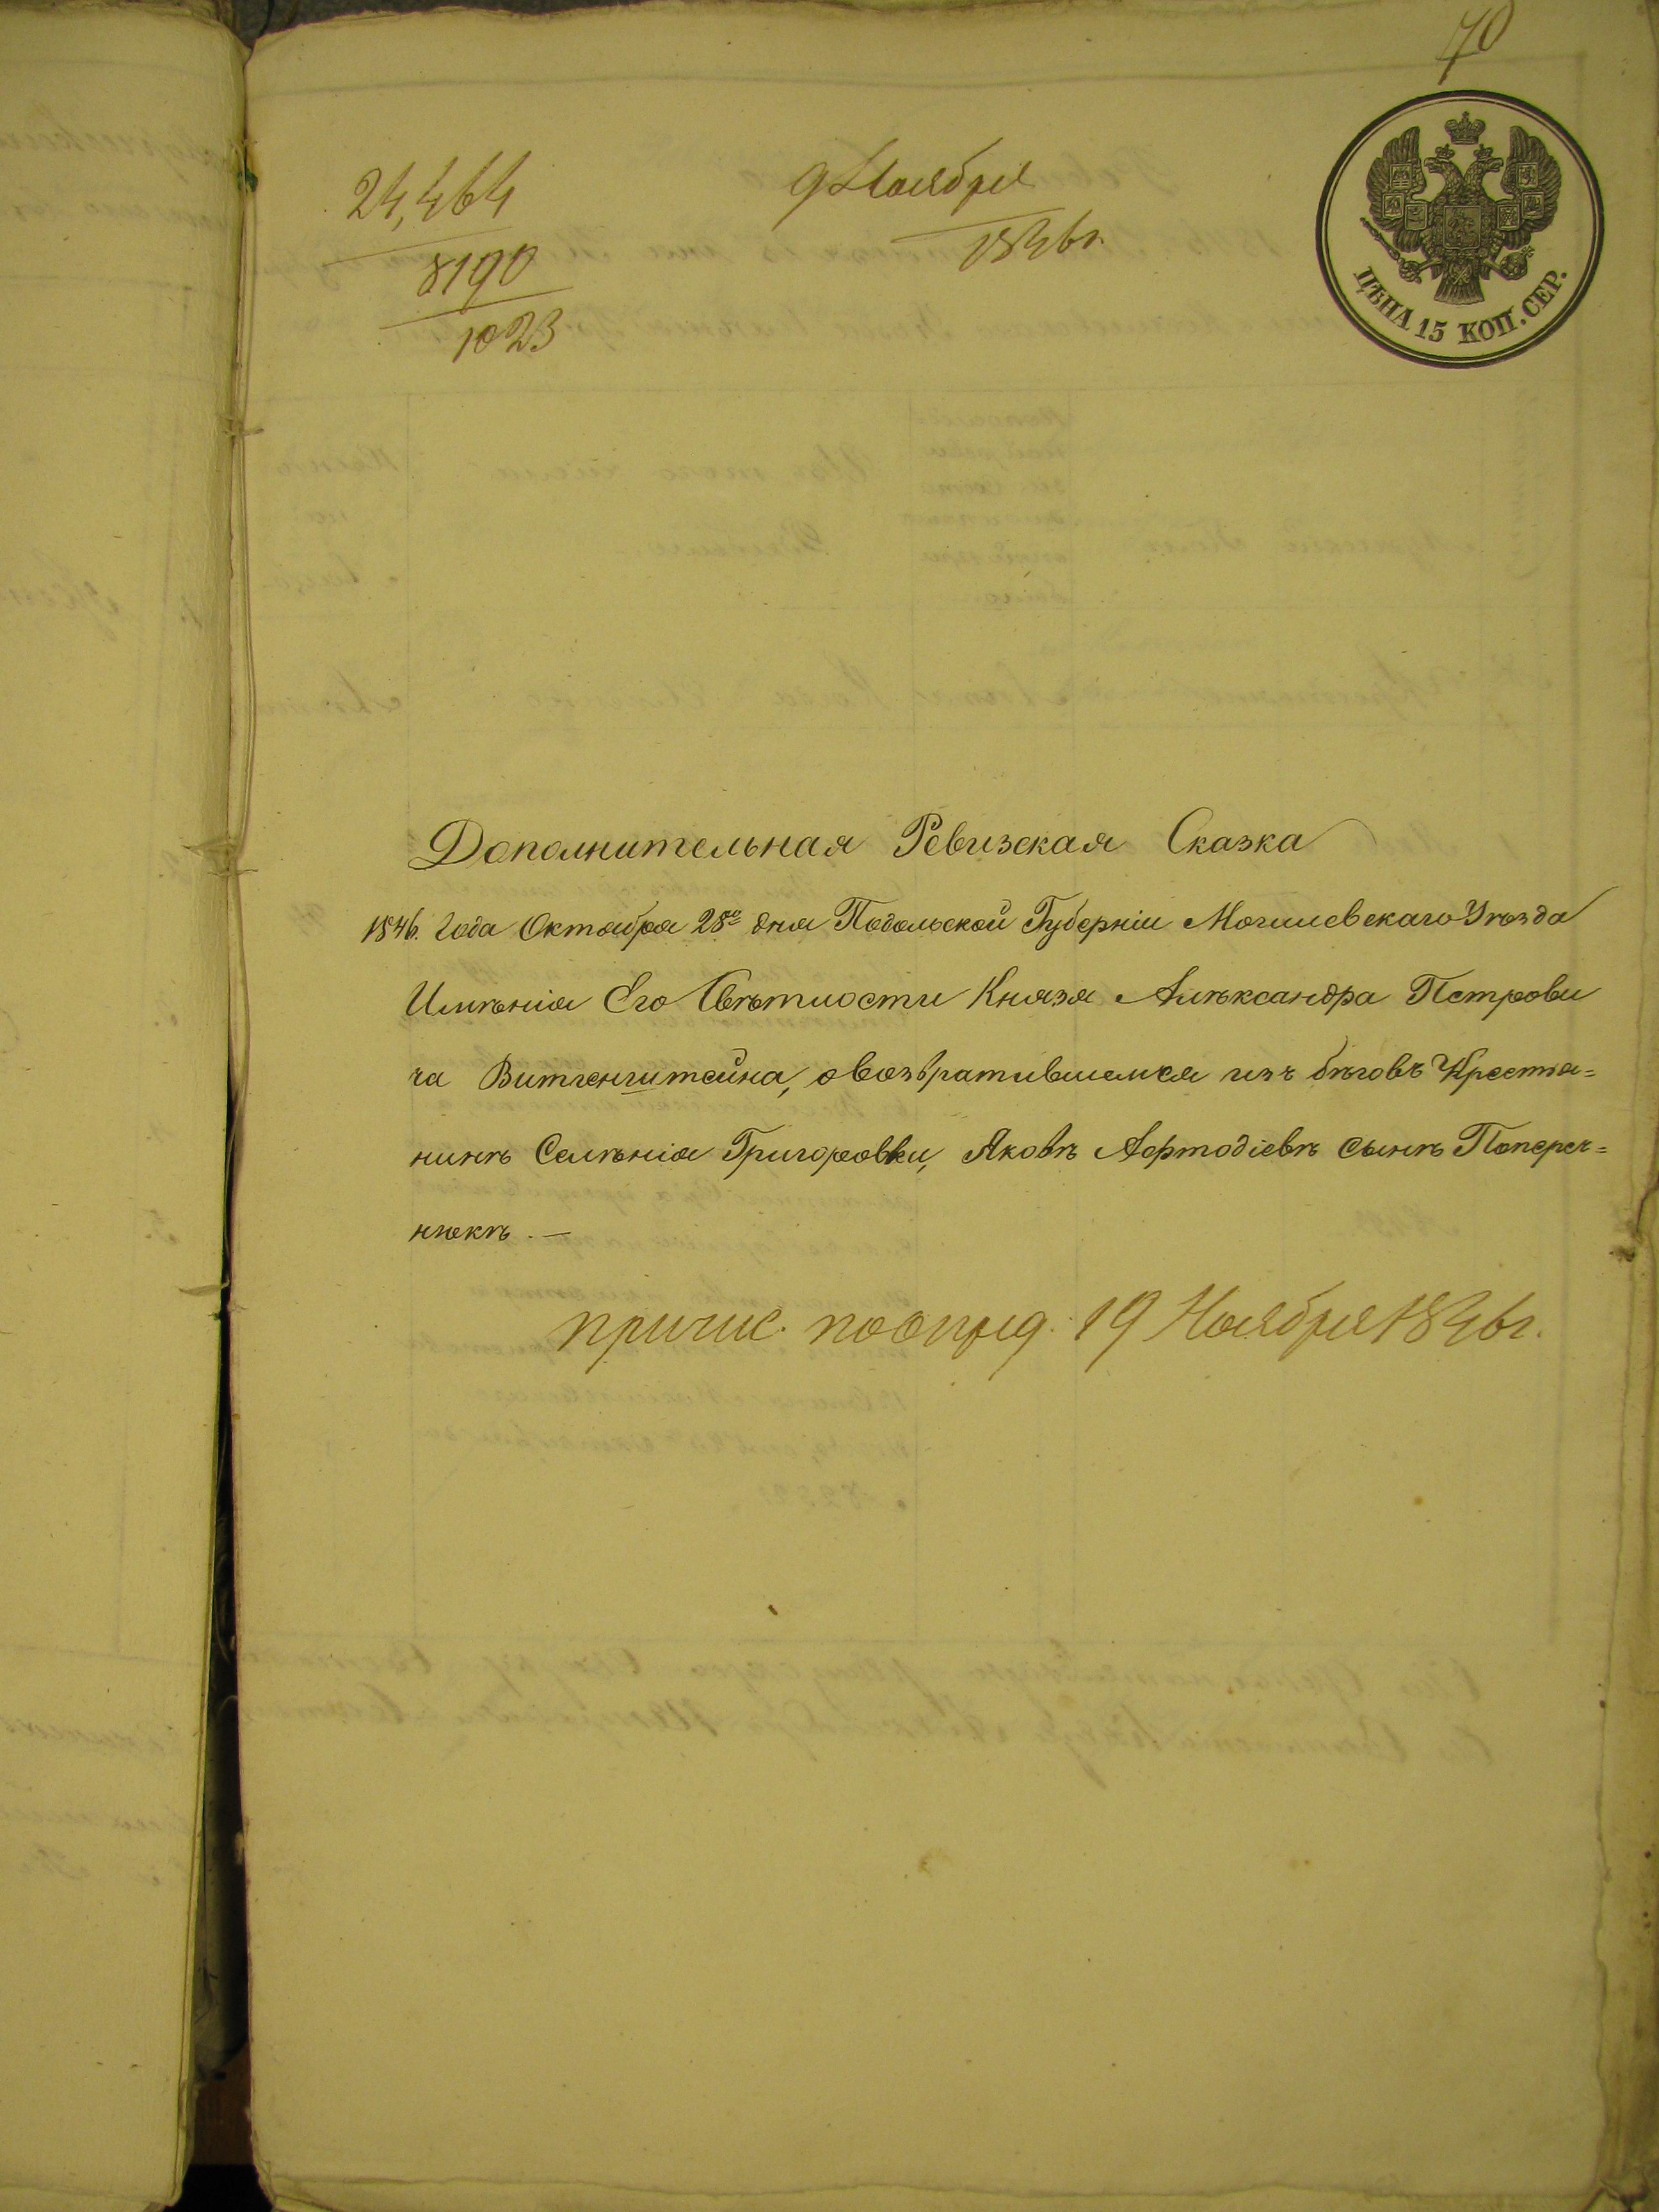 70
24,464
8190
1023
9 Ноября
1846 г.
ЦѢНА 15 КОП. СЕР.
Дополнительная Ревизская Сказка
1846. Года Октября 28го дня Подольской Губерніи Могилевскаго Уѣзда
Имѣнія Его Свѣтлости Князя Алѣксандра Петрови
ча Витгенштейна, о возвратившемся изъ бѣговъ Крестья=
нинѣ Селѣнія Григоровки, Яковѣ сынѣ Попереч=
някѣ. —
причис. по опред. 19 Ноября 1846 г.